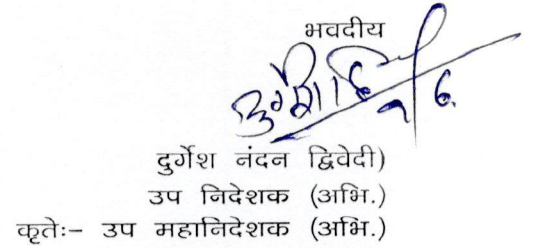 भवदीय
दुर्गेश नंदन द्विवेदी)
उप निदेशक (अभि.)
कृतेः- उप महानिदेशक (अभि.)